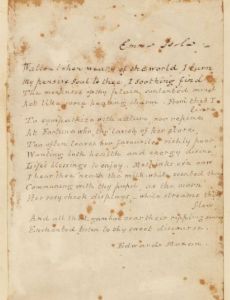 Emma Isola.
Walton! when weary of the world I turn
My pensive Soul to thee, I soothing find
The meekness of thy plain contented mind
Act like some healing charm. From thee I
learn
To sympathise with nature, nor repine
At Fortune, who, tho' lavish of her store,
Too often leaves her favourites richly poor
Wanting both health and energy divine
Life's blessings to enjoy. Methinks ev'n now
I hear thee 'neath the milk white scented thorn
Communing with thy pupil, as the morn
Her rosy cheek displays, while streams that
flow
And all that gambol near their rippling source
Enchanted listen to thy sweet discourse.
Edward Moxon.